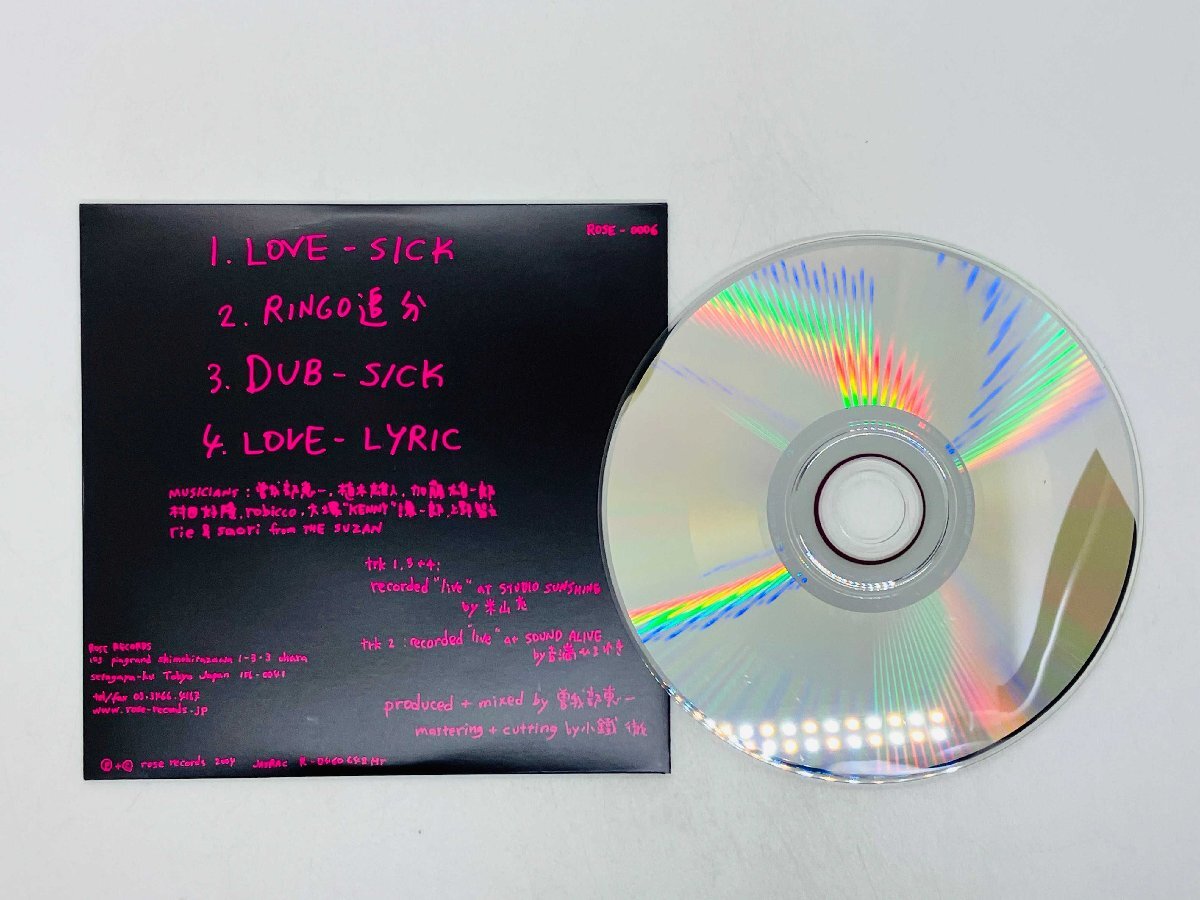 ROSE-0006
1. LOVE-SICK
2. RINGO追分
3. DUB-SICK
4. LOVE-LYRIC
MUSICIANS: 曽我部恵一, 植木雄人, 加藤雄一郎
robicco, 大塚"KENNY"謙一郎, 上野智文
rie & saori from THE SUZAN
trk 1,3+4:
recorded "live" at STUDIO SUNSHINE
by 米山
trk 2: recorded "live" at SOUND ALIVE
by
ROSE RECORDS
shimokitazawa 1-3-3 ohara
setagaya-ku Tokyo Japan
tel/fax 03.
www.rose-records.jp
produced + mixed by 曽我部恵一
mastering + cutting by 小鐵 徹
Ⓟ+© rose records 2004 JASRAC